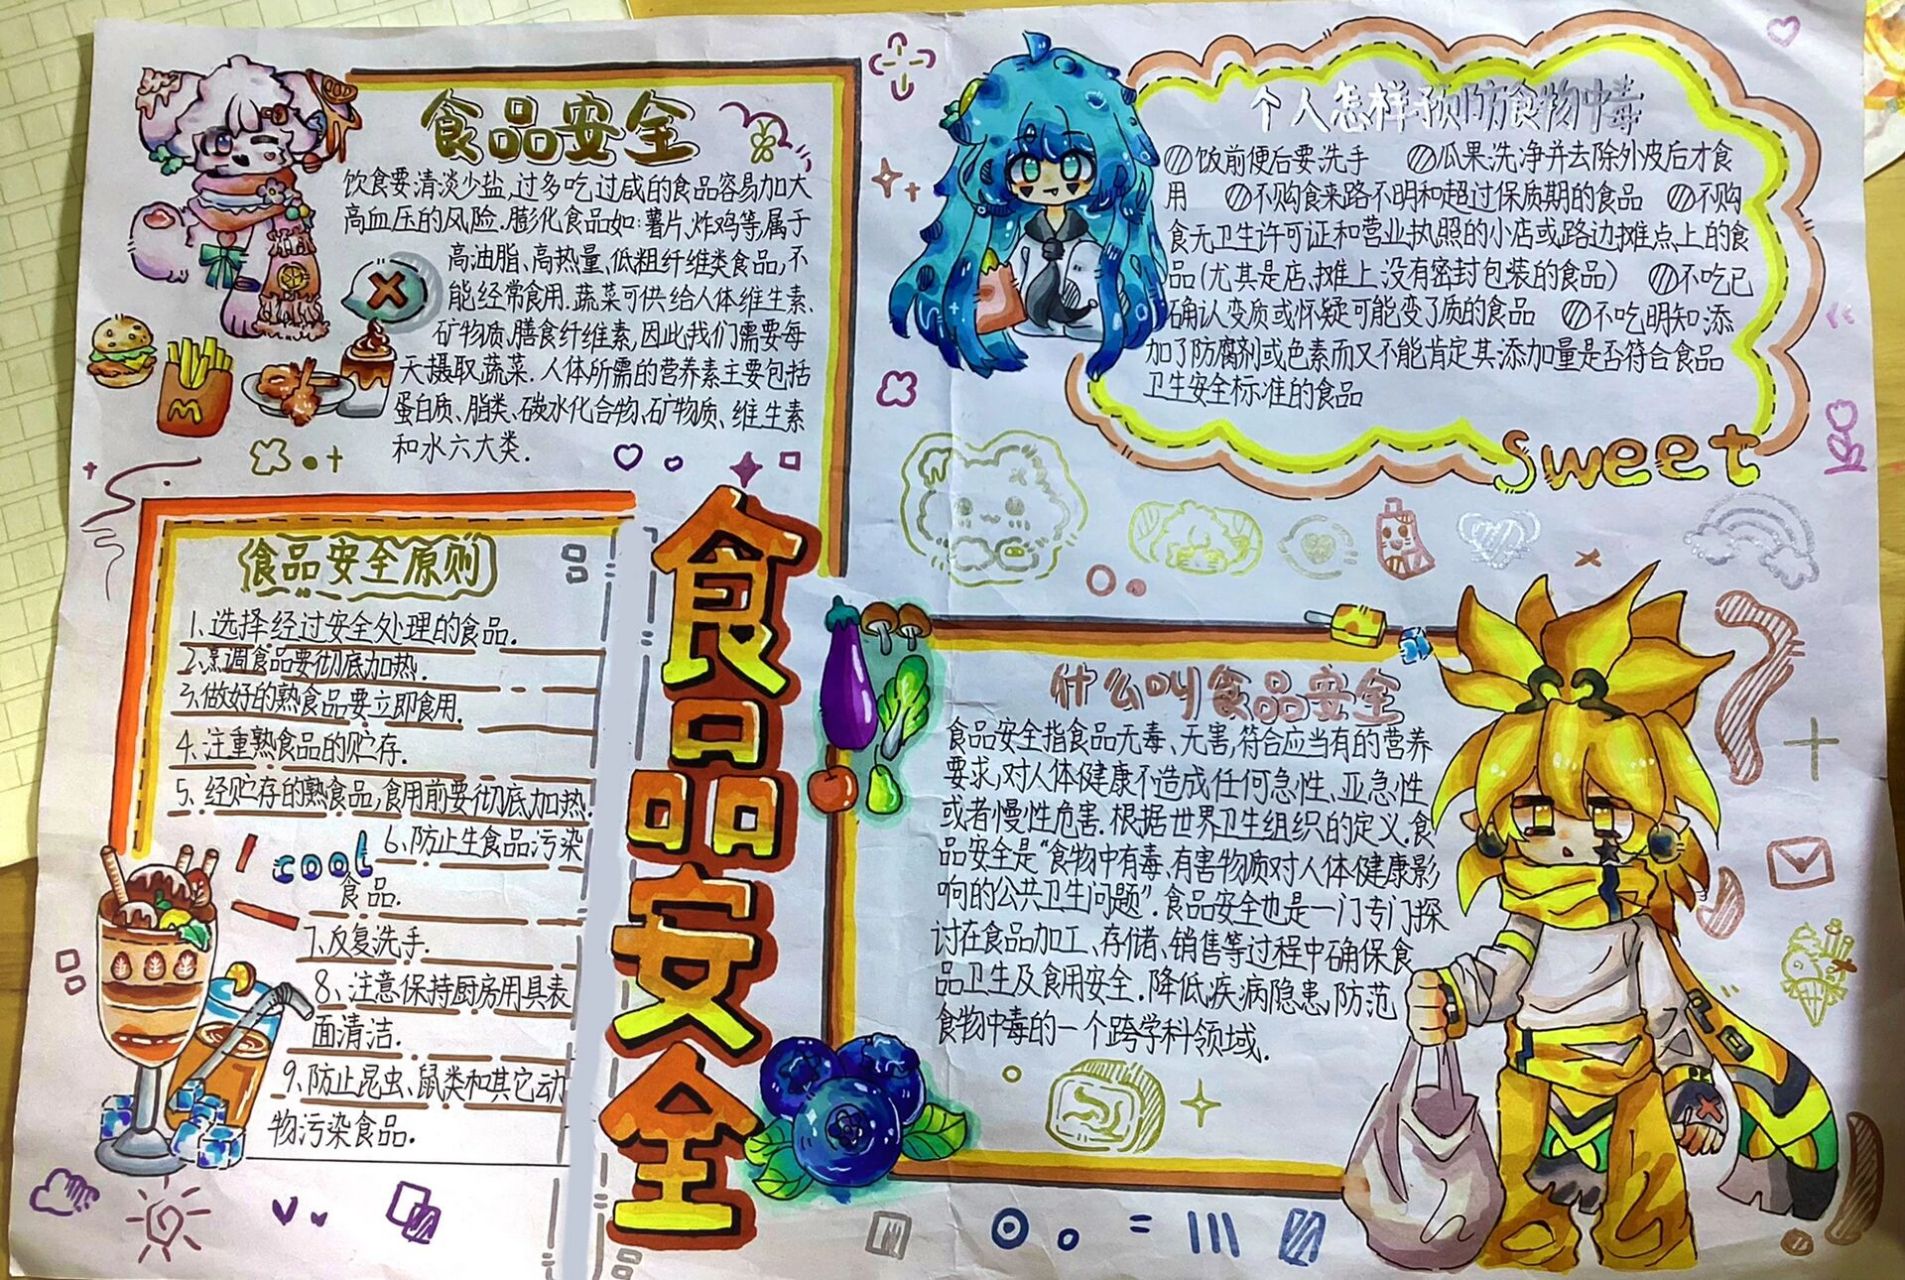 食品安全
饮食要清淡少盐,过多吃过咸的食品容易加大
高血压的风险.膨化食品如:薯片、炸鸡等,属于
高油脂、高热量、低粗纤维类食品,不
能经常食用.蔬菜可供给人体维生素、
矿物质、膳食纤维素,因此我们需要每
天摄取蔬菜.人体所需的营养素主要包括
蛋白质、脂类、碳水化合物、矿物质、维生素
和水六大类.
个人怎样预防食物中毒
饭前便后要洗手 瓜果洗净并去除外皮后才食
用 不购食来路不明和超过保质期的食品 不购
食无卫生许可证和营业执照的小店或路边摊点上的食
品(尤其是店、摊上没有密封包装的食品) 不吃已
确认变质或怀疑可能变了质的食品 不吃明知添
加了防腐剂或色素而又不能肯定其添加量是否符合食品
卫生安全标准的食品
sweet
食品安全原则
1、选择经过安全处理的食品.
2、烹调食品要彻底加热.
3、做好的熟食品要立即食用.
4、注重熟食品的贮存.
5、经贮存的熟食品,食用前要彻底加热.
cool
6、防止生食品污染
食品.
7、反复洗手.
8、注意保持厨房用具表
面清洁.
9、防止昆虫、鼠类和其它动
物污染食品.
食品安全
什么叫食品安全
食品安全指食品无毒、无害,符合应当有的营养
要求,对人体健康不造成任何急性、亚急性
或者慢性危害.根据世界卫生组织的定义,食
品安全是“食物中有毒、有害物质对人体健康影
响的公共卫生问题”.食品安全也是一门专门探
讨在食品加工、存储、销售等过程中确保食
品卫生及食用安全,降低疾病隐患,防范
食物中毒的一个跨学科领域.